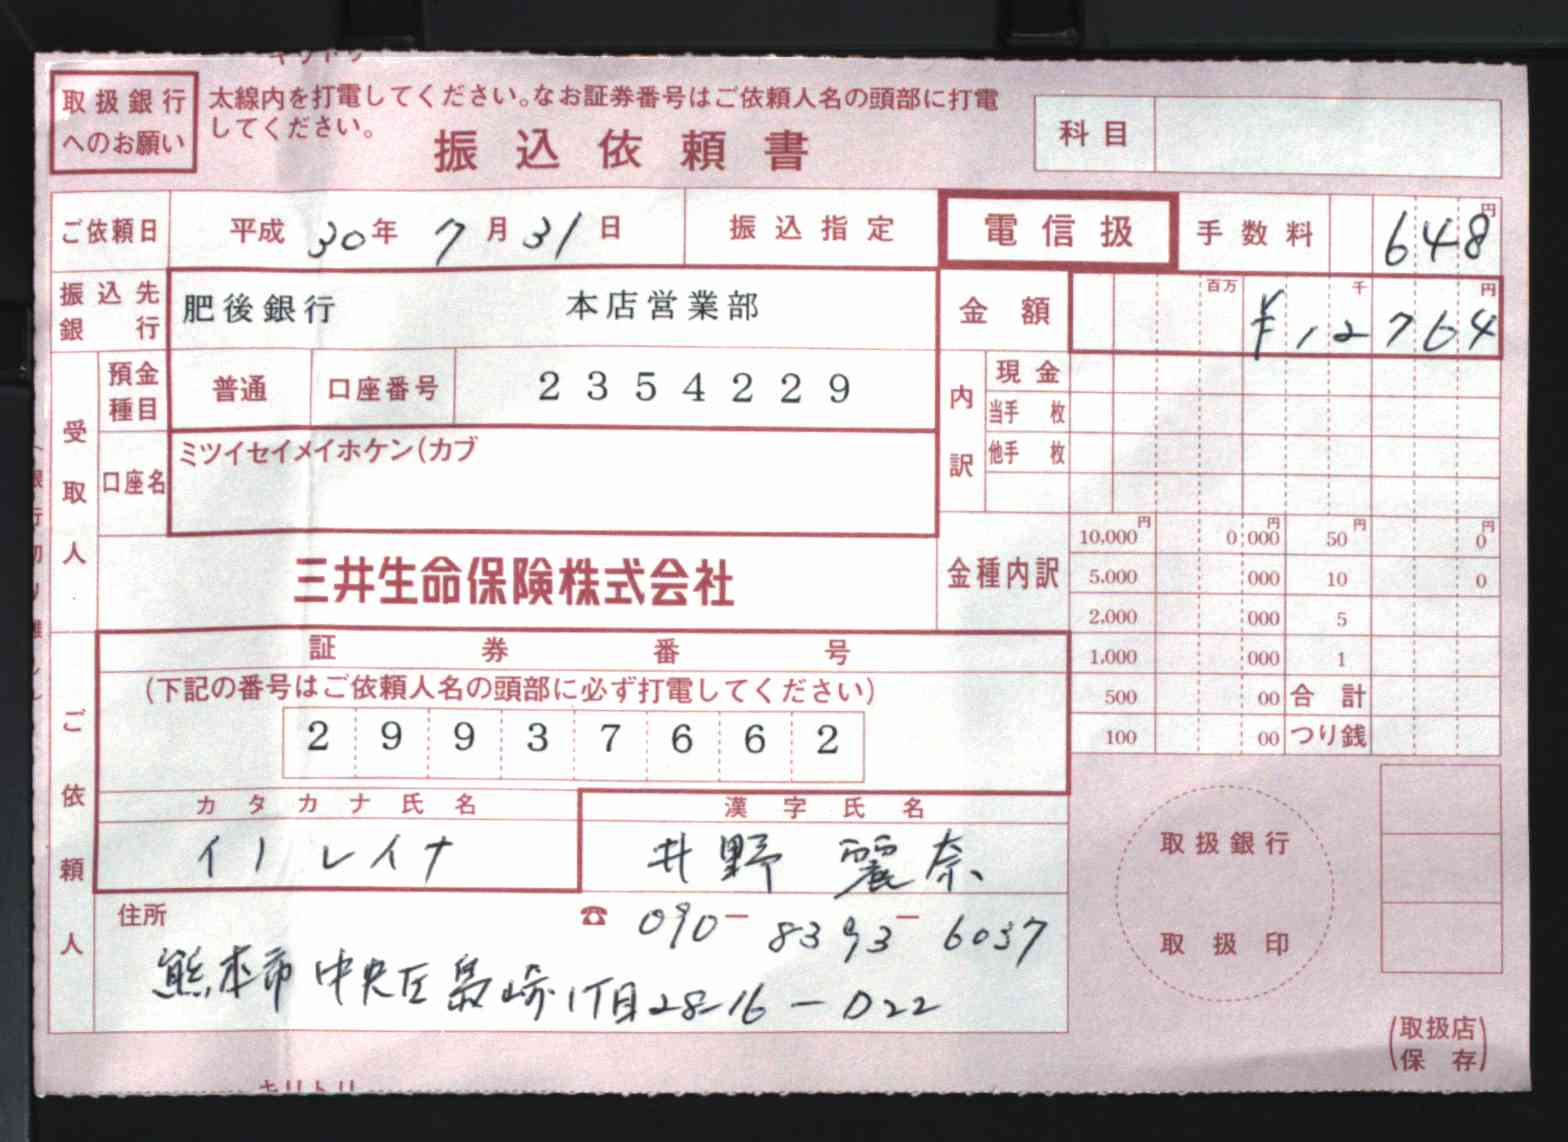 キリトリ
取扱銀行
へのお願い
太線内を打電してください。なお証券番号はご依頼人名の頭部に打電
してください。
振込依頼書
科目
ご依頼日 平成30年7月31日 振込指定 電信扱 手数料 648円
振込先
銀行
肥後銀行 本店営業部
金額 百万 千 円
¥12764
受取人
預金
種目
普通 口座番号 2354229
口座名
ミツイセイメイホケン(カブ
三井生命保険株式会社
内訳
現金
当手 枚
他手 枚
金種内訳
10,000円 0,000円 50円 0円
5,000 000 10 0
2,000 000 5
1,000 000 1
500 00 合計
100 00 つり銭
ご依頼人
証券番号
(下記の番号はご依頼人名の頭部に必ず打電してください)
29937662
カタカナ氏名 漢字氏名
イノ レイナ 井野 麗奈
住所 ☎ 090-8393-6037
熊本市中央区島崎1丁目28-16-D22
取扱銀行
取扱印
(取扱店
保存)
キリトリ